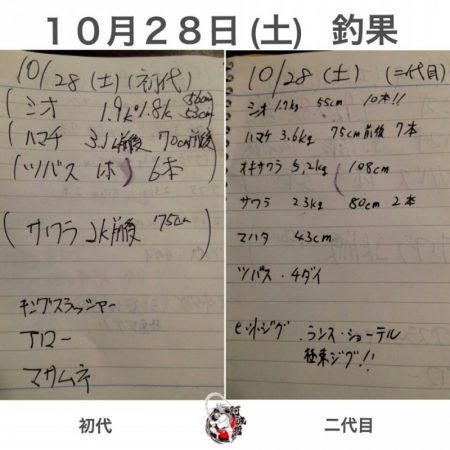 10月28日(土) 釣果
10/28 (土) (初代)
(シオ 1.9k 1.8k 56cm 53cm
(ハマチ 3.1k前後 70cm前後
(ツバス 1本) 6本
(サワラ 2k前後 75cm
キングスラッシャー
アロー
マサムネ
10/28 (土) (二代目)
シオ 1.9kg 55cm 10本!!
ハマチ 3.6kg 75cm前後 7本
オキサワラ 5.2kg (108cm
サワラ 2.3kg 80cm 2本
マハタ 43cm
ツバス・4ダイ
ヒットジグ ランス・ショーテル
極東ジグ!!
初代
二代目